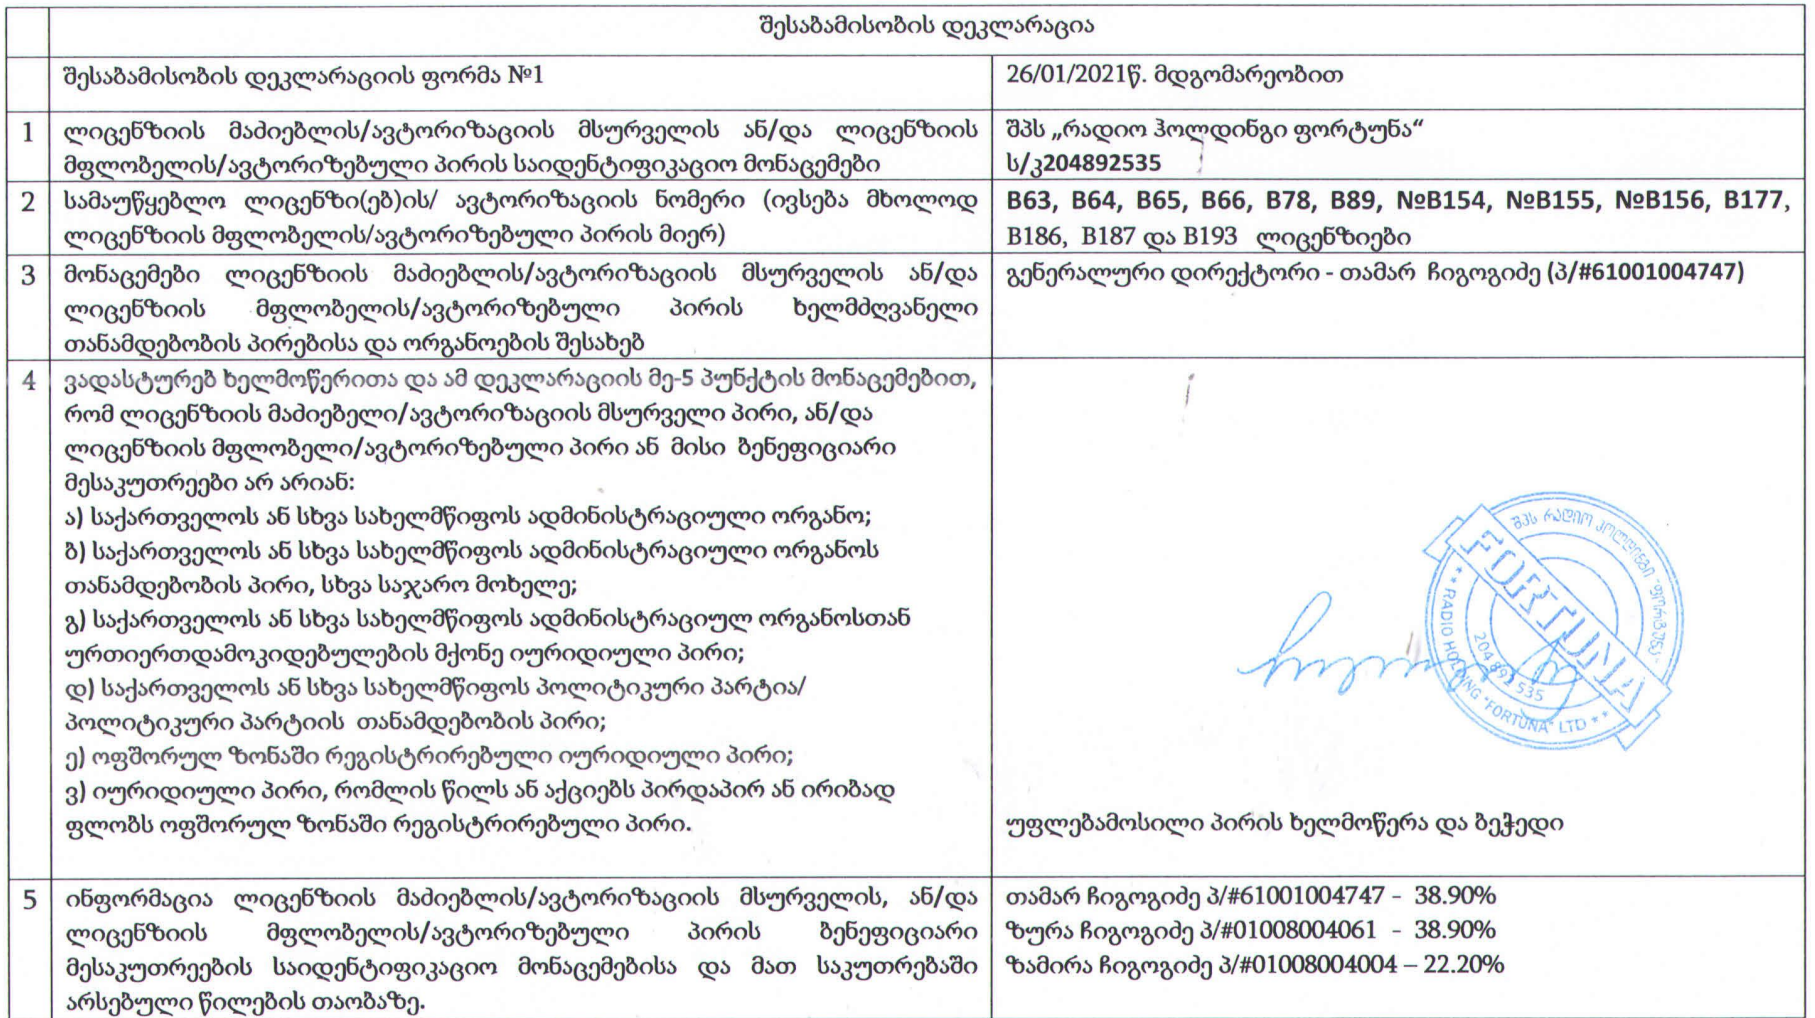 შესაბამისობის დეკლარაცია
შესაბამისობის დეკლარაციის ფორმა №1
26/01/2021წ. მდგომარეობით
1
ლიცენზიის მაძიებლის/ავტორიზაციის მსურველის ან/და ლიცენზიის
მფლობელის/ავტორიზებული პირის საიდენტიფიკაციო მონაცემები
შპს „რადიო ჰოლდინგი ფორტუნა“
ს/კ204892535
2
სამაუწყებლო ლიცენზი(ებ)ის/ ავტორიზაციის ნომერი (ივსება მხოლოდ
ლიცენზიის მფლობელის/ავტორიზებული პირის მიერ)
B63, B64, B65, B66, B78, B89, №B154, №B155, №B156, B177,
B186, B187 და B193 ლიცენზიები
3
მონაცემები ლიცენზიის მაძიებლის/ავტორიზაციის მსურველის ან/და
ლიცენზიის მფლობელის/ავტორიზებული პირის ხელმძღვანელი
თანამდებობის პირებისა და ორგანოების შესახებ
გენერალური დირექტორი - თამარ ჩიგოგიძე (პ/#61001004747)
4
ვადასტურებ ხელმოწერითა და ამ დეკლარაციის მე-5 პუნქტის მონაცემებით,
რომ ლიცენზიის მაძიებელი/ავტორიზაციის მსურველი პირი, ან/და
ლიცენზიის მფლობელი/ავტორიზებული პირი ან მისი ბენეფიციარი
მესაკუთრეები არ არიან:
ა) საქართველოს ან სხვა სახელმწიფოს ადმინისტრაციული ორგანო;
ბ) საქართველოს ან სხვა სახელმწიფოს ადმინისტრაციული ორგანოს
თანამდებობის პირი, სხვა საჯარო მოხელე;
გ) საქართველოს ან სხვა სახელმწიფოს ადმინისტრაციულ ორგანოსთან
ურთიერთდამოკიდებულების მქონე იურიდიული პირი;
დ) საქართველოს ან სხვა სახელმწიფოს პოლიტიკური პარტია/
პოლიტიკური პარტიის თანამდებობის პირი;
ე) ოფშორულ ზონაში რეგისტრირებული იურიდიული პირი;
ვ) იურიდიული პირი, რომლის წილს ან აქციებს პირდაპირ ან ირიბად
ფლობს ოფშორულ ზონაში რეგისტრირებული პირი.
შპს რადიო ჰოლდინგი "ფორტუნა"
FORTUNA
204 892 535
** RADIO HOLDING "FORTUNA" LTD **
უფლებამოსილი პირის ხელმოწერა და ბეჭედი
5
ინფორმაცია ლიცენზიის მაძიებლის/ავტორიზაციის მსურველის, ან/და
ლიცენზიის მფლობელის/ავტორიზებული პირის ბენეფიციარი
მესაკუთრეების საიდენტიფიკაციო მონაცემებისა და მათ საკუთრებაში
არსებული წილების თაობაზე.
თამარ ჩიგოგიძე პ/#61001004747 - 38.90%
ზურა ჩიგოგიძე პ/#01008004061 - 38.90%
ზამირა ჩიგოგიძე პ/#01008004004 – 22.20%